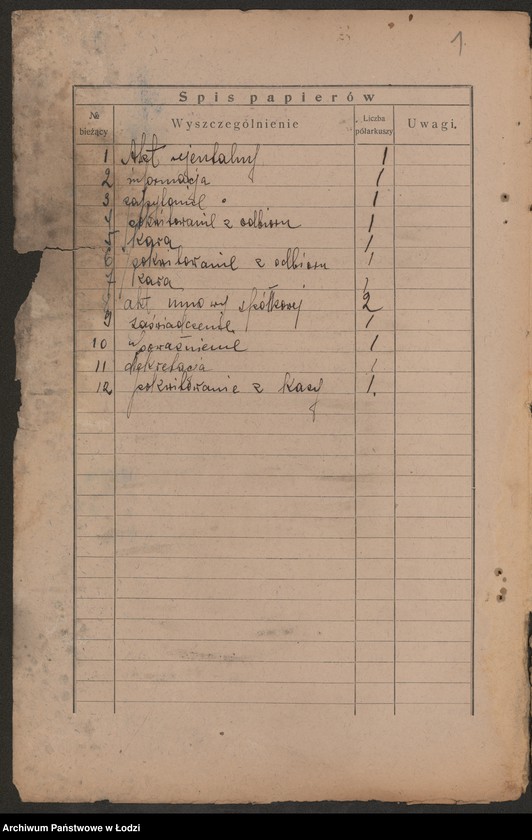 1
Spis papierów
№ bieżący Wyszczególnienie Liczba półarkuszy Uwagi.
1 Akt rejentalny 1
2 informacja 1
3 zapytanie 1
4 pokwitowanie z odbioru 1
5 Kara 1
6 pokwitowanie z odbioru 1
7 Kara 1
8 akt umowy spółkowej 2
9 zaświadczenie 1
10 upoważnienie 1
11 deklaracja 1
12 pokwitowanie z kasy 1.
Archiwum Państwowe w Łodzi